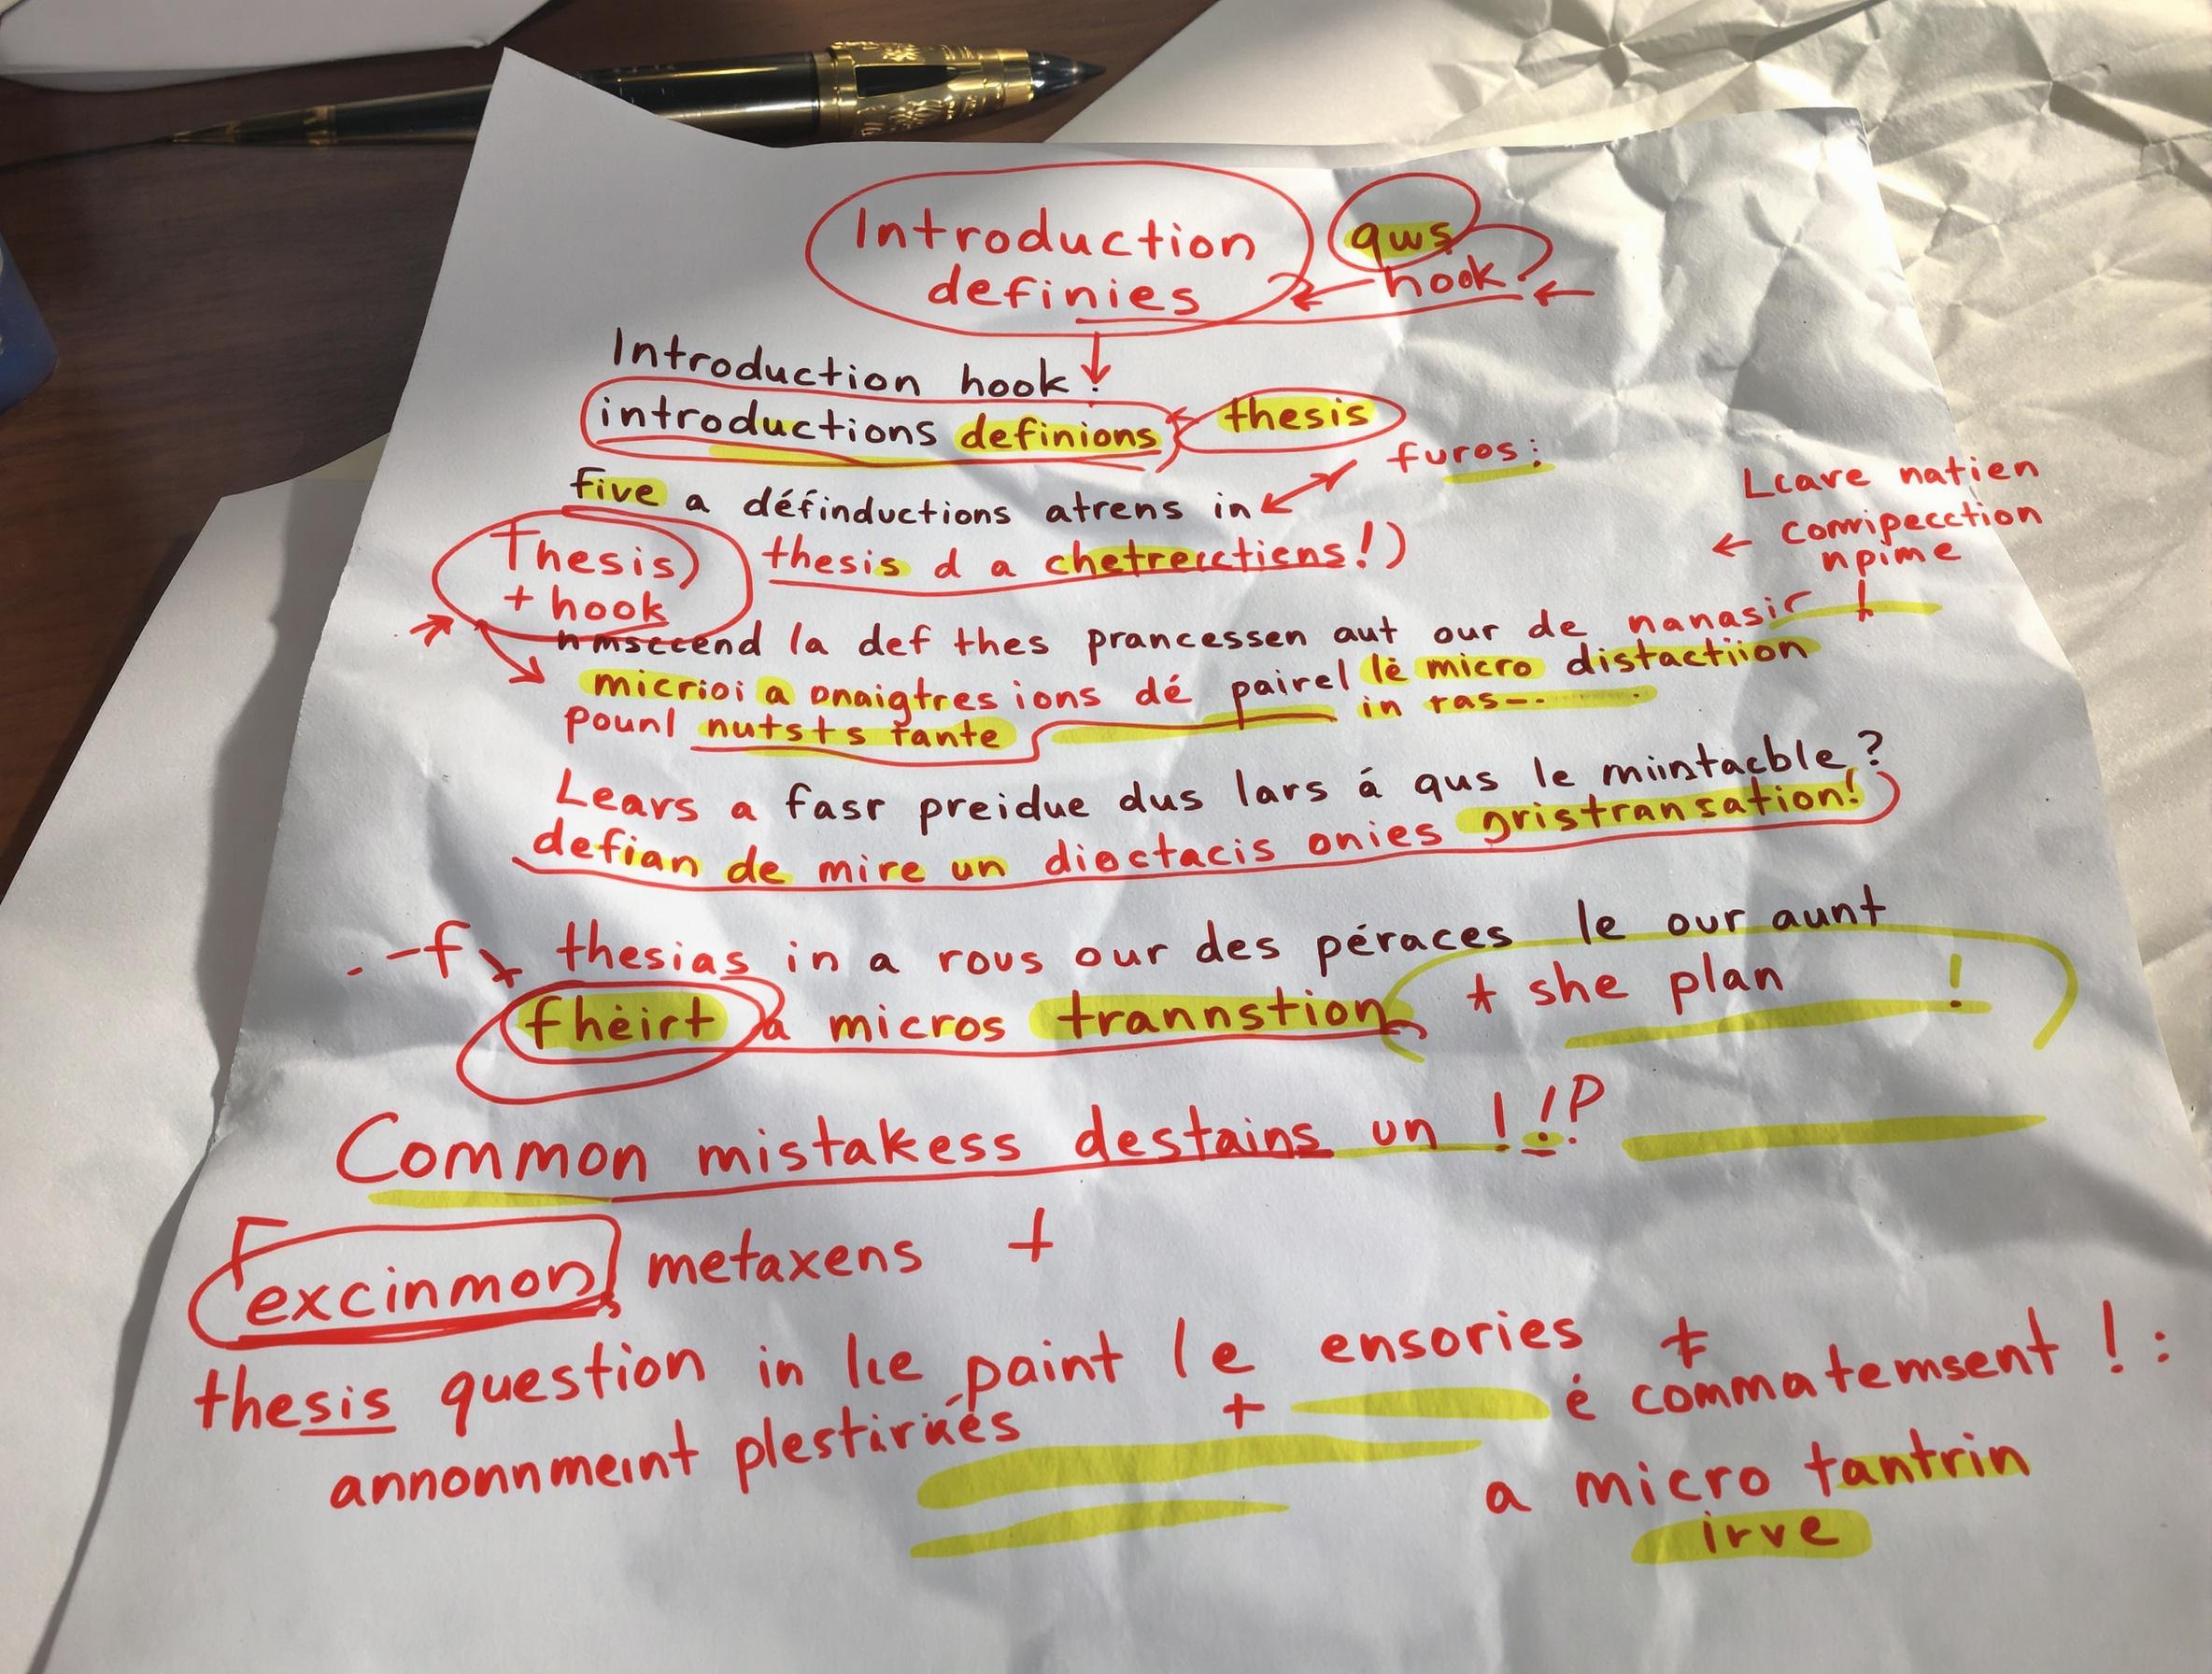 Introduction
definies
qws
hook?
Introduction hook!
introductions definions
thesis
furos:
five a définductions atrens in
Lcave natien
← comripecction
npime
Thesis
+ hook
thesis d a chetrecctiens!)
nmsccend la def thes prancessen aut our de nanasir !
micrioi a onaigtres ions dé pairel lè micro distactiion
pounl nutsts tante in ras--
Lears a fasr preidue dus lars á qus le miintacble?
defian de mire un dioctacis onies gristransation!
thesias in a rous our des péraces le our aunt
fhèirt a micros trannstion
+ she plan !
Common mistakess destains un !!P
excinmon metaxens +
thesis question in lie paint le ensories +
annonnmeint plestirués + é commatemsent !:
a micro tantrin
irve